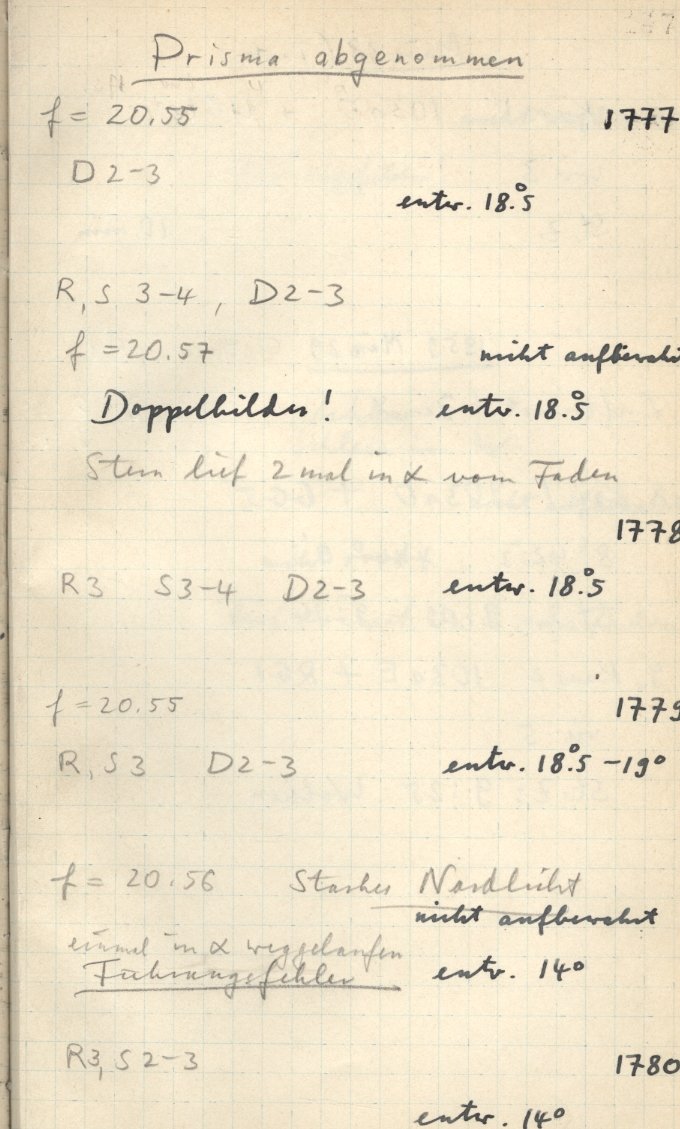 Prisma abgenommen
f = 20.55 1777
D 2-3
entw. 18.°5
R, S 3-4, D 2-3
f = 20.57 nicht aufbewahrt
Doppelbilder! entw. 18.°5
Stern lief 2 mal in α vom Faden
1778
R3 S3-4 D2-3 entw. 18.°5
f = 20.55 1779
R, S3 D2-3 entw. 18.°5 - 19°
f = 20.56 Starkes Nordlicht
nicht aufbewahrt
einmal in α weggelaufen
Führungsfehler entw. 14°
R3, S 2-3 1780
entw. 14°